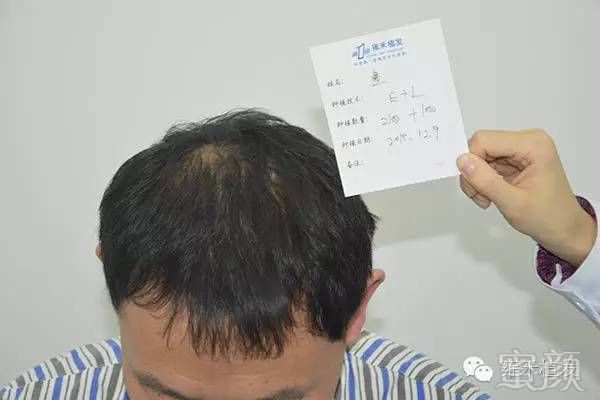 雍禾植发
姓名:
种植技术: E+L
种植数量: 2100 + 100
种植日期: 2015.12.9
备注:
雍禾植发
蜜颜